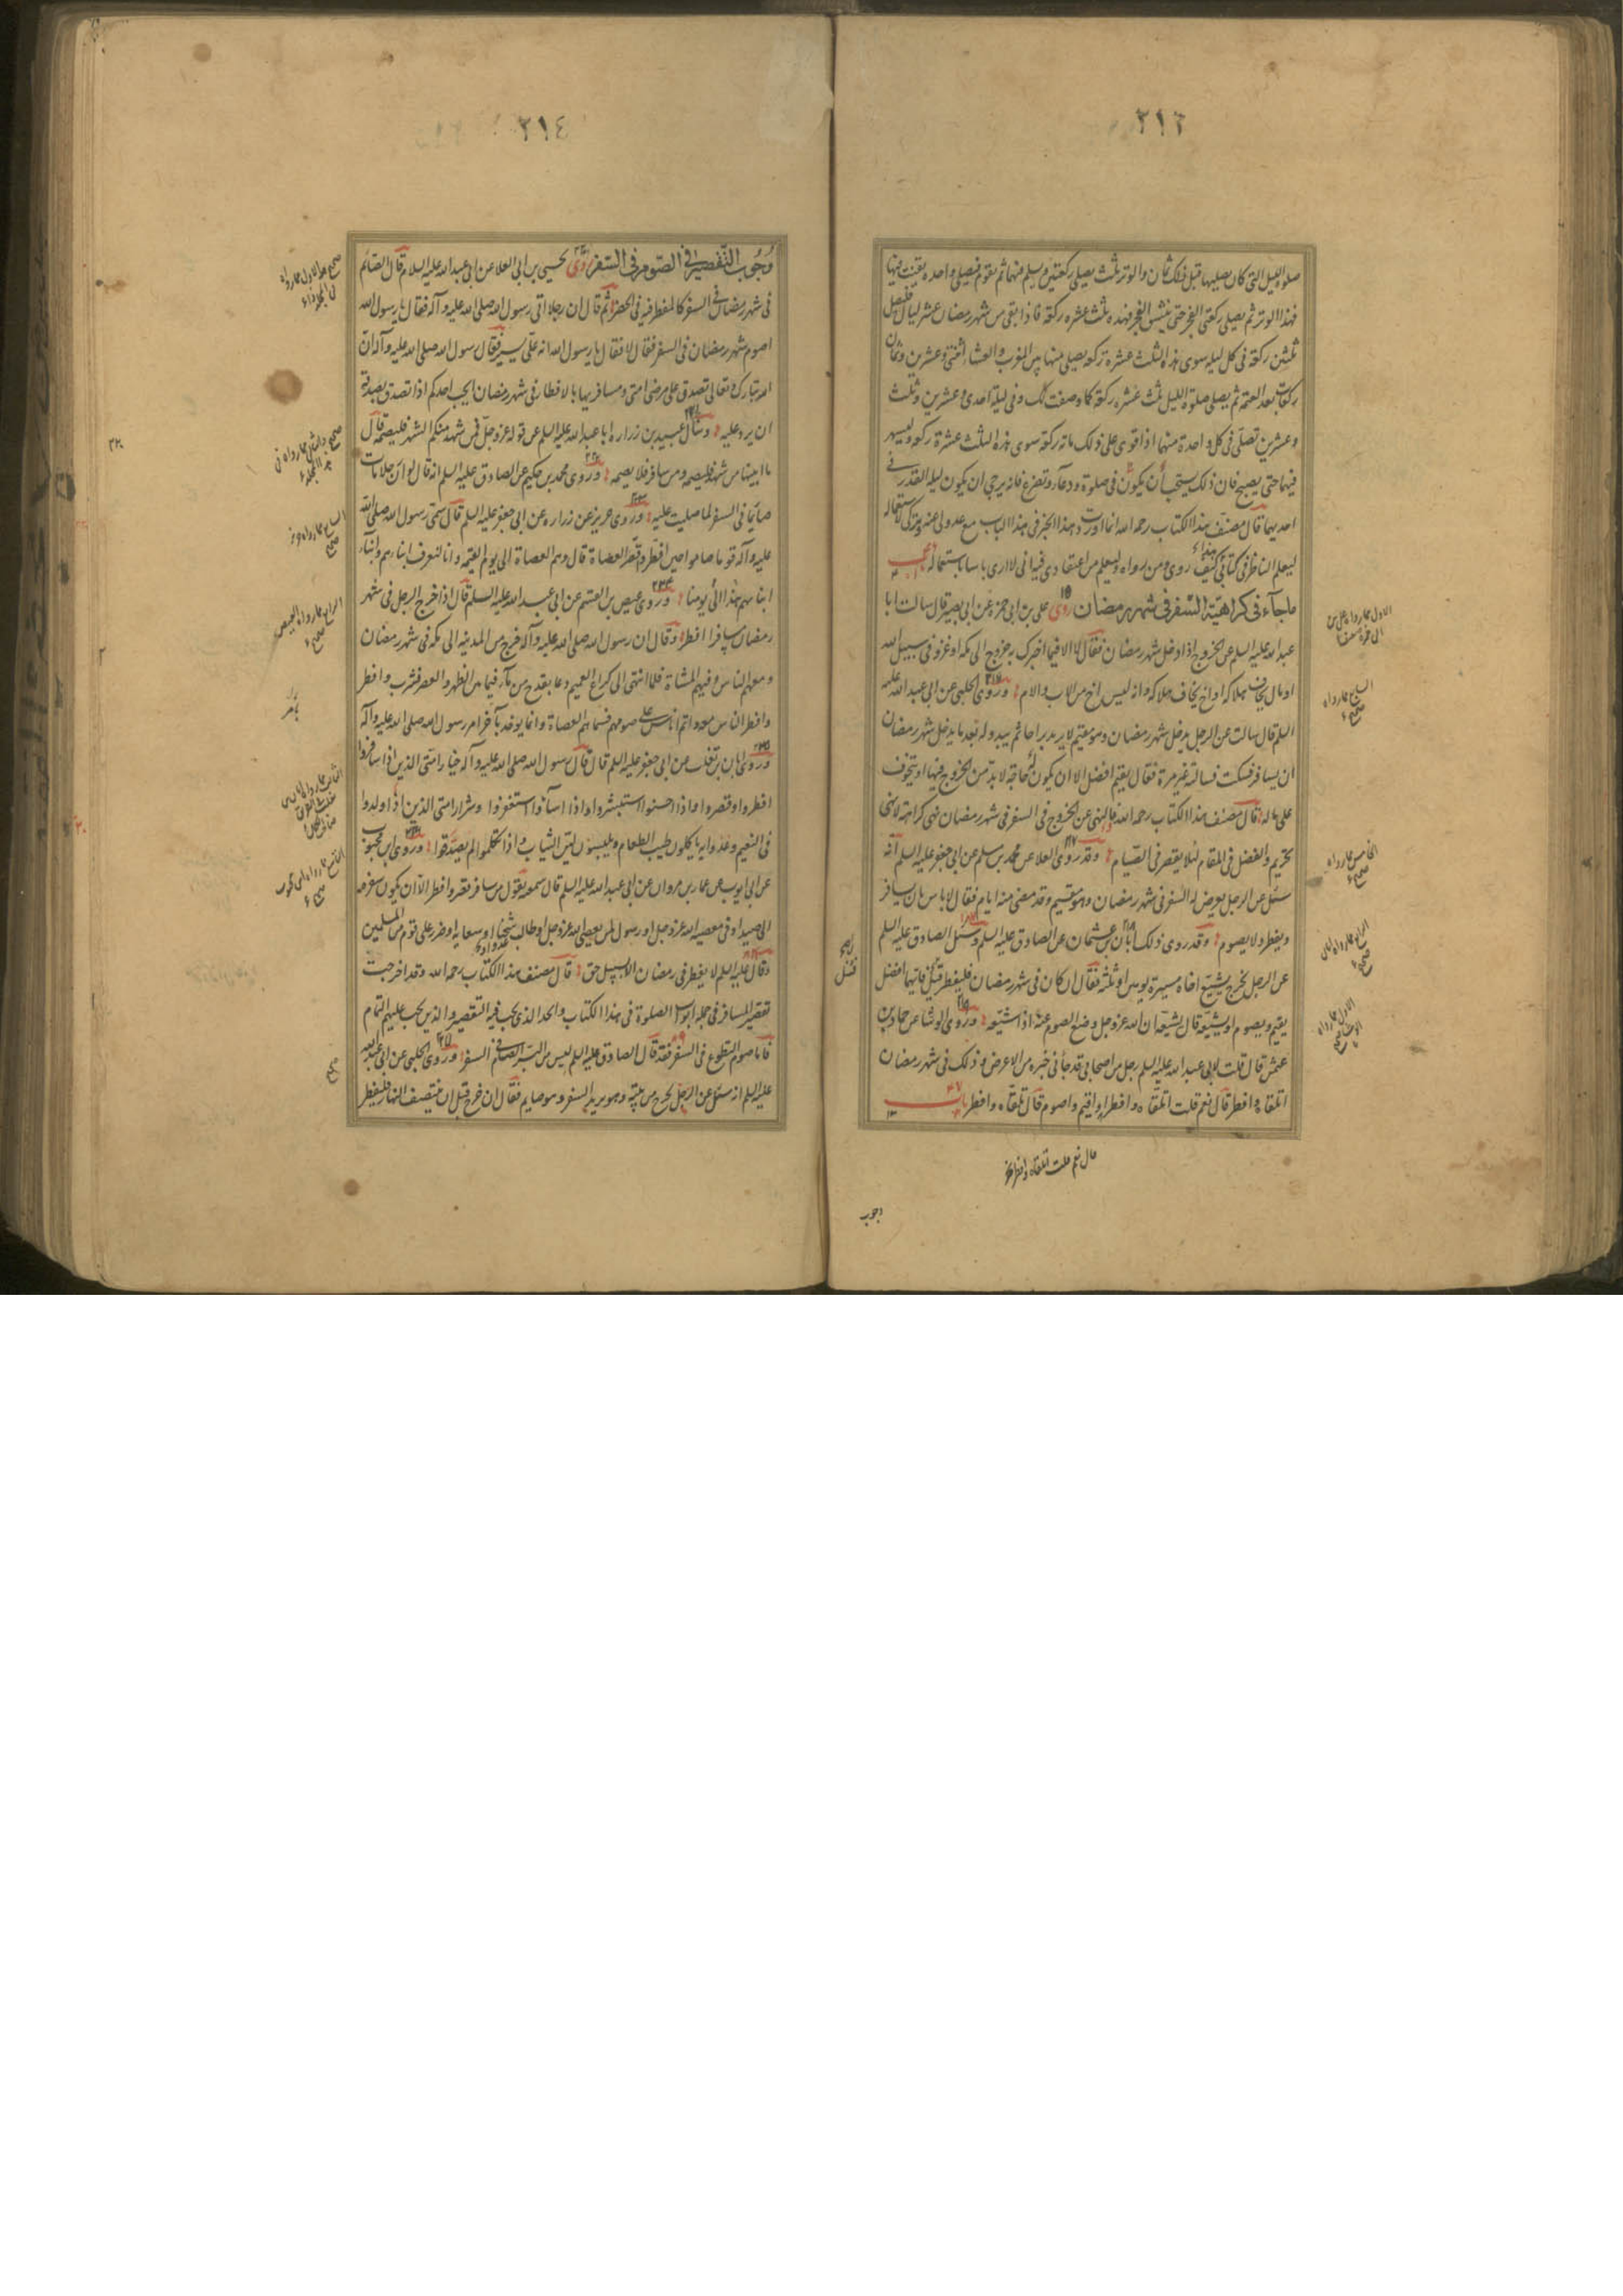 ٣١٣
صلوة الليل التى كان يصليها قبل ذلك ثمان والوتر ثلث يصلى ركعتين ويسلم فيهما ثم يقوم فيصلى واحدة يقنت فيها
فهذا الوتر ثم يصلى ركعتى الفجر حتى ينشق الفجر فهذه ثلث عشره ركعة فاذا بقى من شهر رمضان عشر ليال فليصل
ثلثين ركعة فى كل ليلة سوى هذه الثلث عشرة ركعة يصلى منها بين المغرب والعشاء اثنتى وعشرين وثمان
ركعات بعد العتمة ثم يصلى صلوة الليل ثلث عشره ركعة كما وصفت لك وفى ليلة احدى وعشرين وثلث
وعشرين تصلى فى كل واحدة منهما اذا قوى على ذلك مائة ركعة سوى هذه الثلث عشرة ركعة وليسهر
فيهما حتى يصبح فان ذلك يستحب أن يكون فى صلوة ودعاء وتضرع فانه يرجى ان يكون ليلة القدر فى
احديهما قال مصنف هذا الكتاب رحمه الله انما اوردت هذا الخبر فى هذا الباب مع عدولى عنه وتركى لاستعماله
ليعلم الناظر فى كتابى هذا كيف روى ومن رواه وليعلم من اعتقادى فيه انى لا ارى باسا باستعماله باب
ما جآء فى كراهية السفر فى شهر رمضان روى على بن ابى حمزة عن ابى بصير قال سالت ابا
عبد الله عليه السلم عن الخروج اذا دخل شهر رمضان فقال لا الا فيما اخبرك به خروج الى مكه او غزو فى سبيل الله
او مال يخاف هلاكه او اخ يخاف هلاكه وانه ليس اخ من الاب والام وروى الحلبى عن ابى عبد الله عليه
السلم قال سالت عن الرجل يدخل شهر رمضان وهو مقيم لا يريد براحا ثم يبدو له بعد ما يدخل شهر رمضان
ان يسافر فسكت فسالته غير مرة فقال يقيم افضل الا ان يكون له حاجة لا بد من الخروج فيها او يتخوف
على ماله قال مصنف هذا الكتاب رحمه الله فالنهى عن الخروج فى السفر فى شهر رمضان نهى كراهة لا نهى
تحريم والفضل فى المقام لئلا يقصر فى الصيام وقد روى العلا عن محمد بن مسلم عن ابى جعفر عليه السلم انه
سئل عن الرجل يعرض له السفر فى شهر رمضان وهو مقيم وقد مضى منه ايام فقال لا باس بان يسافر
ويفطر ولا يصوم وقد روى ذلك ابان بن عثمان عن الصادق عليه السلم وسئل الصادق عليه السلم
عن الرجل يخرج يشيع اخاه مسيرة يومين او ثلثة فقال ان كان فى شهر رمضان فليفطر قيل فايهما افضل
يقيم ويصوم او يشيعه قال يشيعه ان الله عز وجل وضع الصوم عنه اذا شيعه وروى الوشا عن حماد بن
عثمن قال قلت لابى عبد الله عليه السلم رجل من اصحابى قد جاءنى خبره من الاعوض وذلك فى شهر رمضان
اتلقاه وافطر قال نعم قلت اتلقاه وافطر او اقيم واصوم قال تلقاه وافطر باب
قال نعم قلت اتلقاه وافطر
وجوب
٣١٤
وجوب التقصير فى الصوم فى السفر روى يحيى بن ابى العلا عن ابى عبد الله عليه السلام قال الصائم
فى شهر رمضان فى السفر كالمفطر فيه فى الحضر ثم قال ان رجلا اتى رسول الله صلى الله عليه وآله فقال يا رسول الله
اصوم شهر رمضان فى السفر فقال لا فقال يا رسول الله انه على يسير فقال رسول الله صلى الله عليه وآله ان
الله تبارك وتعالى تصدق على مرضى امتى ومسافريها بالافطار فى شهر رمضان ايحب احدكم اذا تصدق بصدقة
ان يرد عليه وسأل عبيد بن زرارة ابا عبد الله عليه السلم عن قوله عز وجل فمن شهد منكم الشهر فليصمه قال
ما ابينها من شهد فليصمه ومن سافر فلا يصمه وروى محمد بن حكيم عن الصادق عليه السلم انه قال لو ان رجلا مات
صائما فى السفر لما صليت عليه وروى حريز عن زرارة عن ابى جعفر عليه السلم قال سمى رسول الله صلى الله
عليه وآله قوما صاموا حين افطر وقصر العصاة قال وهم العصاة الى يوم القيمة وانا لنعرف ابناءهم وابناء
ابنائهم الى يومنا هذا وروى عيص بن القسم عن ابى عبد الله عليه السلم قال اذا خرج الرجل فى شهر
رمضان مسافرا افطر وقال ان رسول الله صلى الله عليه وآله خرج من المدينة الى مكة فى شهر رمضان
ومعه الناس وفيهم المشاة فلما انتهى الى كراع الغميم دعا بقدح من ماء فيما بين الظهر والعصر فشرب وافطر
وافطر الناس معه واتم اناس على صومهم فسماهم العصاة وانما يؤخذ بآخر امر رسول الله صلى الله عليه وآله
وروى ابان بن تغلب عن ابى جعفر عليه السلم قال قال رسول الله صلى الله عليه وآله خيار امتى الذين اذا سافروا
افطروا وقصروا واذا احسنوا استبشروا واذا اساؤا استغفروا وشرار امتى الذين اذا ولدوا
فى النعيم وغذوا به ياكلون طيب الطعام ويلبسون لين الثياب واذا تكلموا لم يصدقوا وروى ابن محبوب
عن ابى ايوب عن عمار بن مروان عن ابى عبد الله عليه السلم قال سمعته يقول من سافر قصر وافطر الا ان يكون سفره
الى صيد او فى معصية الله عز وجل او رسول لمن يعصى الله عز وجل او طالب شحنا او سعاية او ضرر على قوم من المسلمين
وقال عليه السلم لا يفطر فى رمضان الا بسبيل حق قال مصنف هذا الكتاب رحمه الله وقد اخرجت
تقصير المسافر فى جملة ابواب الصلوة فى هذا الكتاب والحد الذى يجب فيه التقصير والذين يجب عليهم التمام
فاما صوم التطوع فى السفر فقد قال الصادق عليه السلم ليس من البر الصيام فى السفر وروى الحلبى عن ابى عبد الله
عليه السلم انه سئل عن الرجل يخرج من بيته وهو يريد السفر وهو صايم فقال ان خرج قبل ان ينتصف النهار فليفطر